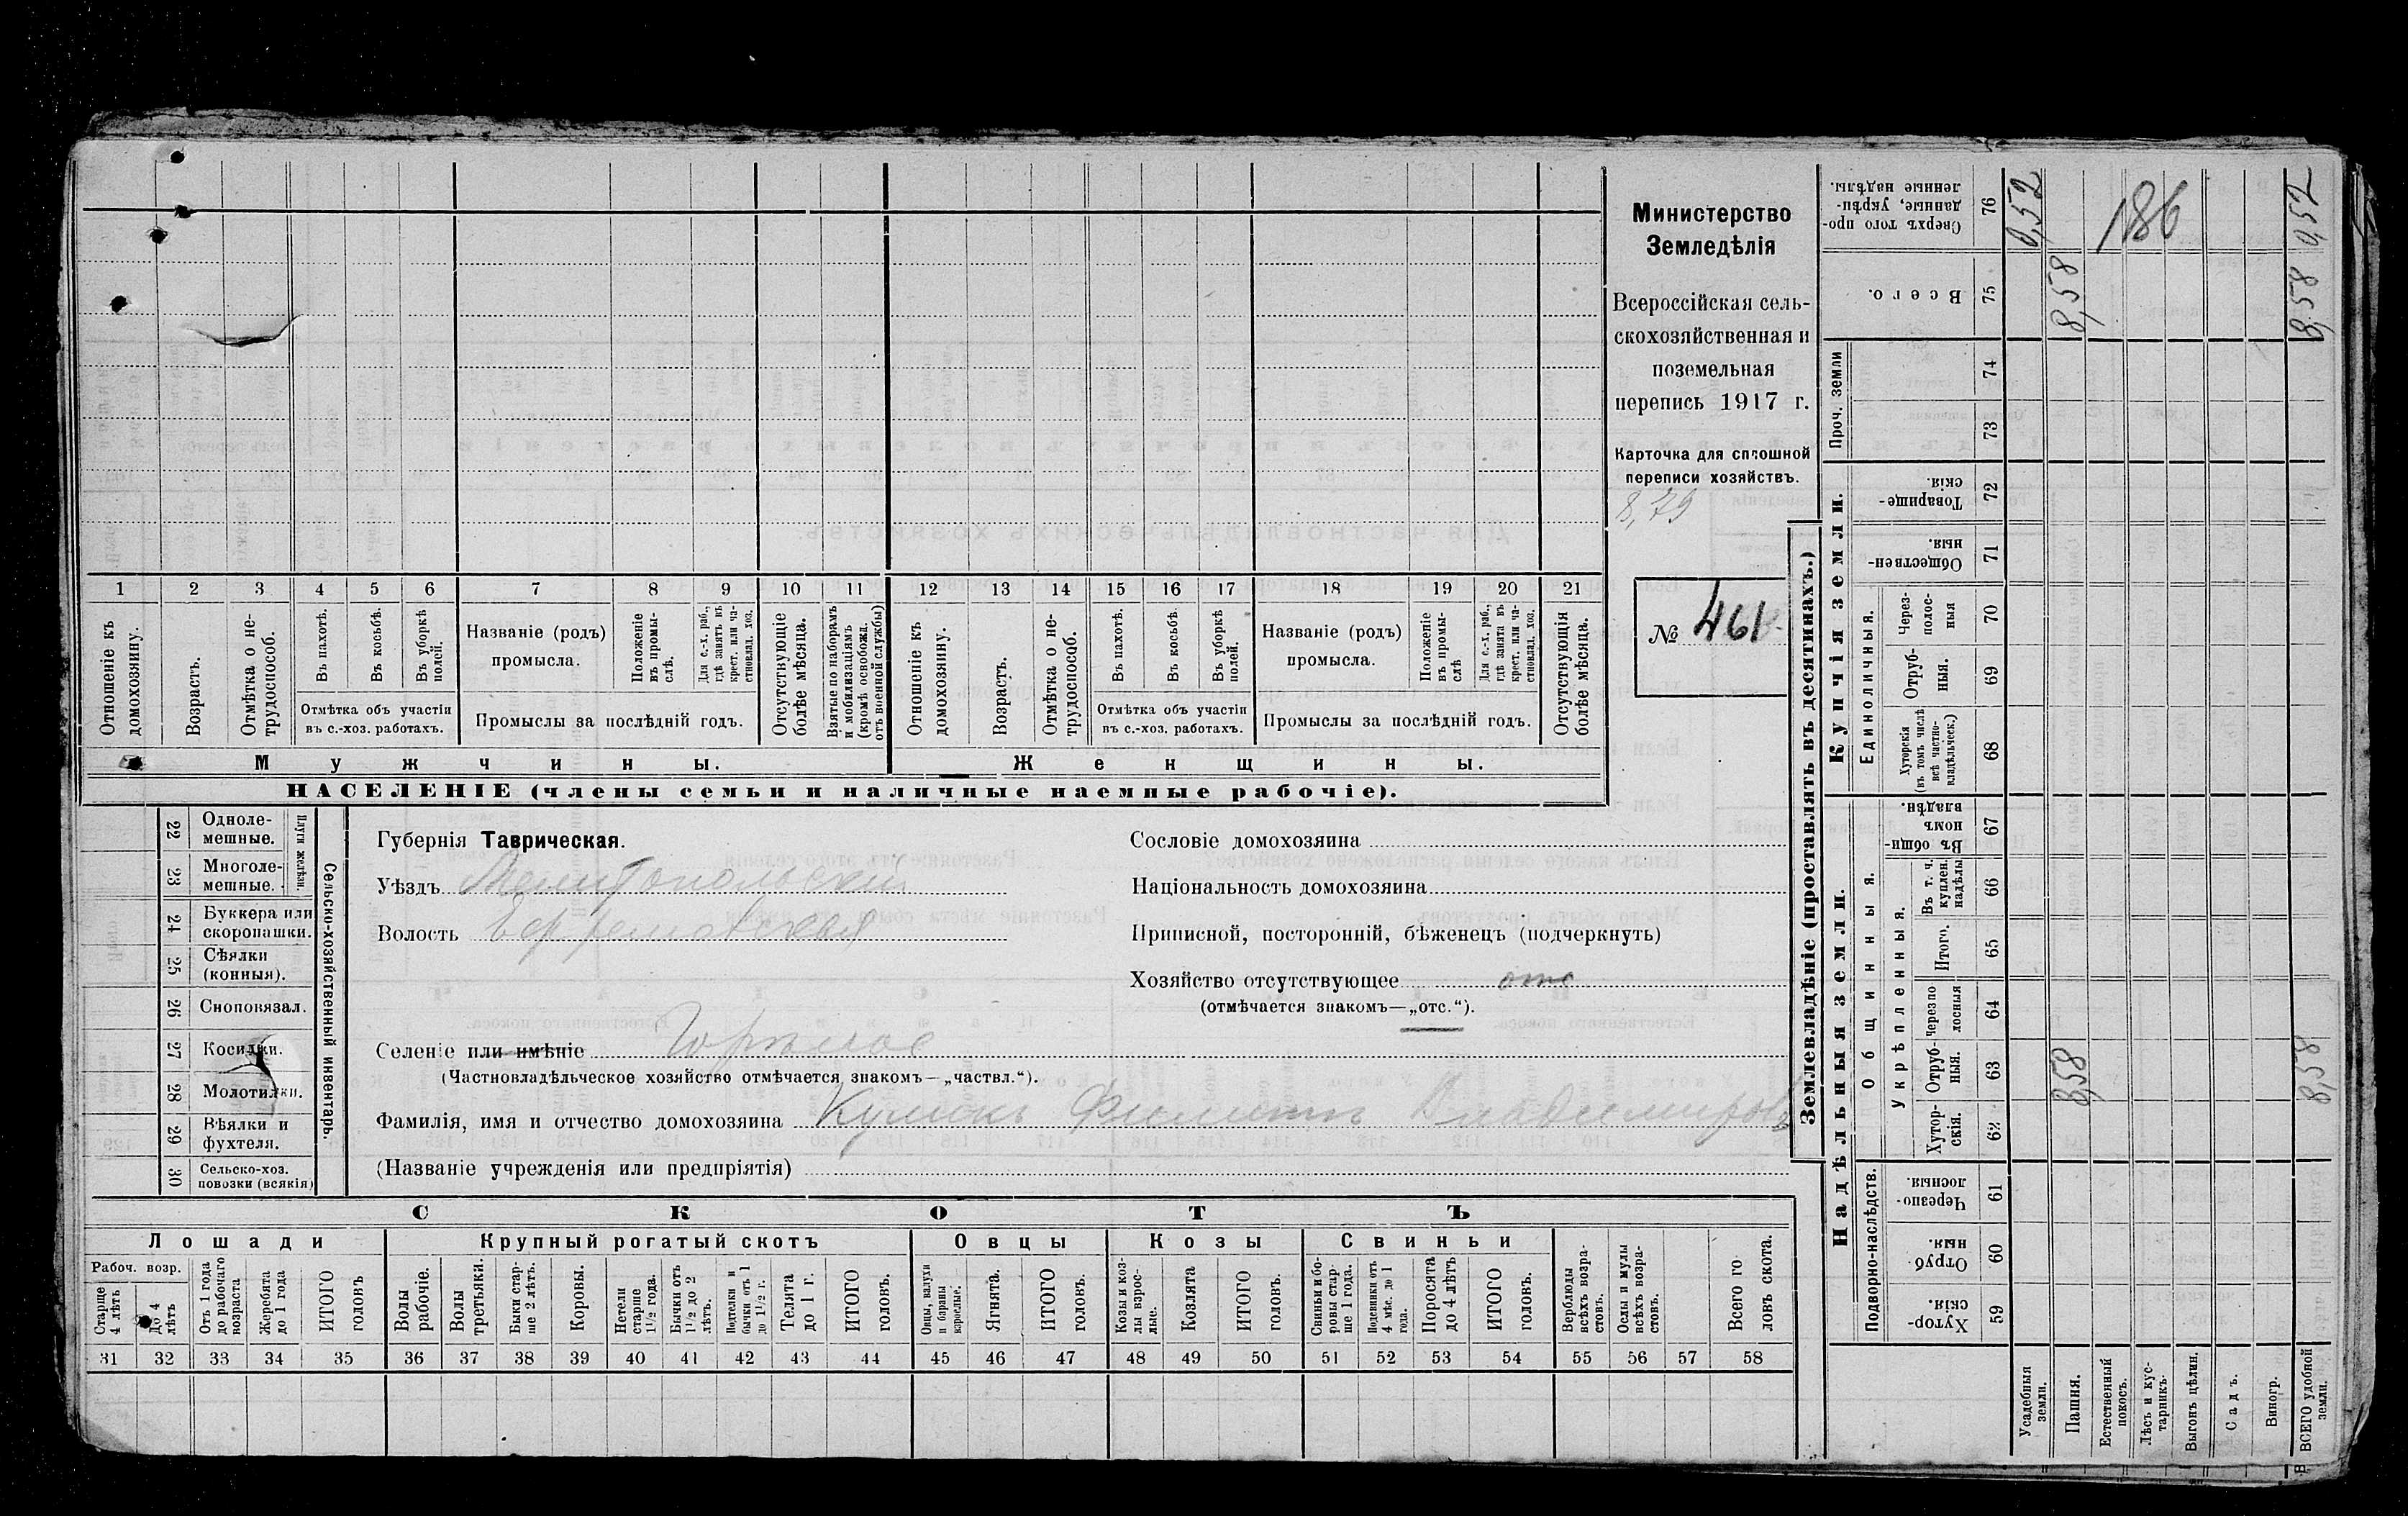 Министерство
Земледѣлія
Всероссійская сель-
скохозяйственная и
поземельная
перепись 1917 г.
Карточка для сплошной
переписи хозяйствъ.
8,79
№ 461
1 2 3 4 5 6 7 8 9 10 11 12 13 14 15 16 17 18 19 20 21
Отношеніе къ
домохозяину.
Возрастъ.
Отмѣтка о не-
трудоспособ.
Въ пахотѣ.
Въ косьбѣ.
Въ уборкѣ
полей.
Отмѣтка объ участіи
въ с.-хоз. работахъ.
Названіе (родъ)
промысла.
Положеніе
въ промы-
слѣ.
Для с.-х. раб.,
гдѣ занятъ въ
крест. или ча-
стновлад. хоз.
Промыслы за послѣдній годъ.
Отсутствующіе
болѣе мѣсяца.
Взятые по наборамъ
и мобилизаціямъ
(кромѣ освобожд.
отъ военной службы)
Отношеніе къ
домохозяину.
Возрастъ.
Отмѣтка о не-
трудоспособ.
Въ пахотѣ.
Въ косьбѣ.
Въ уборкѣ
полей.
Отмѣтка объ участіи
въ с.-хоз. работахъ.
Названіе (родъ)
промысла.
Положеніе
въ промы-
слѣ
Для с.-х. раб.,
гдѣ занята въ
крест. или ча-
стновлад. хоз.
Промыслы за послѣдній годъ.
Отсутствующія
болѣе мѣсяца.
Мужчины.
Женщины.
НАСЕЛЕНІЕ (члены семьи и наличные наемные рабочіе).
22 Одноле-
мешные.
23 Многоле-
мешные.
Плуги желѣзн.
24 Буккера или
скоропашки.
25 Сѣялки
(конныя).
26 Сноповязал.
27 Косилки.
28 Молотилки.
29 Вѣялки и
фухтеля.
30 Сельско-хоз.
повозки (всякія)
Сельско-хозяйственный инвентарь.
Губернія Таврическая.
Уѣздъ Мелитопольскій
Волость
Селеніе или имѣніе Горѣлое
(Частновладѣльческое хозяйство отмѣчается знакомъ—„частвл.“).
Фамилія, имя и отчество домохозяина Кулюкъ Филиппъ Владимировъ
(Названіе учрежденія или предпріятія)
Сословіе домохозяина
Національность домохозяина
Приписной, посторонній, бѣженецъ (подчеркнуть)
Хозяйство отсутствующее отс
(отмѣчается знакомъ—„отс.“).
СКОТЪ
Лошади
Крупный рогатый скотъ
Овцы
Козы
Свиньи
Рабоч. возр.
Старше
4 лѣтъ
До 4
лѣтъ
Отъ 1 года
до рабочаго
возраста
Жеребята
до 1 года
ИТОГО
головъ
Волы
рабочіе.
Волы
третьяки.
Быки стар-
ше 2 лѣтъ.
Коровы.
Нетели
старше
1½ года.
Бычки отъ
1½ до 2
лѣтъ.
Подтелки и
бычки отъ 1
до 1½ г.
Телята
до 1 г.
ИТОГО
головъ.
Овцы, валухи
и бараны
взрослые.
Ягнята.
ИТОГО
головъ.
Козы и коз-
лы взрос-
лые.
Козлята
ИТОГО
головъ.
Свиньи и бо-
ровы стар-
ше 1 года.
Подсвинки отъ
4 мѣс. до 1
года.
Поросята
до 4 лѣтъ
ИТОГО
головъ.
Верблюды
всѣхъ возра-
стовъ.
Ослы и мулы
всѣхъ возра-
стовъ.
Всего го
ловъ скота.
31 32 33 34 35 36 37 38 39 40 41 42 43 44 45 46 47 48 49 50 51 52 53 54 55 56 57 58
Землевладѣніе (проставлять въ десятинахъ.)
Надѣльныя земли.
Купчія земли.
Проч. земли
Подворно-наслѣдств.
Общинныя.
Укрѣпленныя.
Единоличныя.
Хутор-
скія.
59
Отруб
ныя
60
Черезпо-
лосныя.
61
Хутор-
скія.
62
Отруб-
ныя.
63
Черезпо
лосныя
64
Итого.
65
Въ т. ч.
куплен.
надѣлы
66
Въ общи-
номъ
владѣн.
67
Хуторскія
(въ томъ числѣ
всѣ частно-
владѣльческ.)
68
Отруб-
ныя.
69
Через-
полос-
ныя
70
Обществен-
ныя.
71
Товарище-
скія.
72
73
74
Всего.
75
Сверхъ того про-
данные, укрѣп-
ленные надѣлы.
76
Усадебныя
земли.
0,52
Пашня.
8,58 8,58
Естественный
покосъ.
186
Лѣсъ и кус-
тарникъ.
Выгонъ цѣлин.
Садъ.
Виногр.
ВСЕГО удобной
земли.
8,58 8,58 0,52